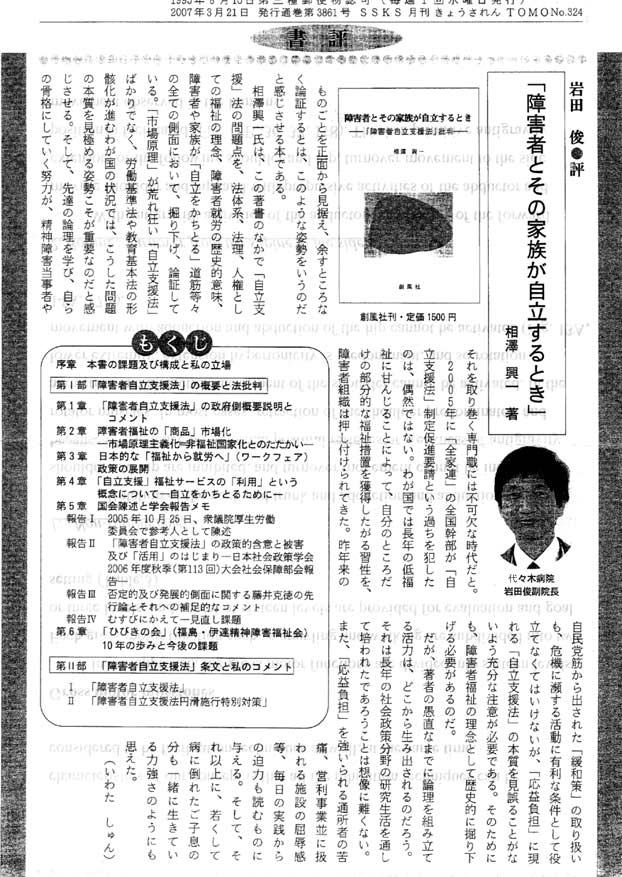 2007年3月21日 発行通巻第3861号 SSKS 月刊きょうされん TOMO No.324
書評
岩田 俊 評
「障害者とその家族が自立するとき」
相澤 興一 著
障害者とその家族が自立するとき
―「障害者自立支援法」批判―
相澤 與一
創風社
創風社刊・定価 1500 円
代々木病院
岩田俊副院長
ものごとを正面から見据え、余すところな
く論証するとは、このような姿勢をいうのだ
と感じさせる本である。
相澤興一氏は、この著書のなかで「自立支
援」法の問題点を、法体系、法理、人権とし
ての福祉の理念、障害者就労の歴史的意味、
障害者や家族が「自立をかちとる」道筋等々
の全ての側面において、掘り下げ、論証して
いる。「市場原理」が荒れ狂い「自立支援法」
ばかりでなく、労働基準法や教育基本法の形
骸化が進むわが国の状況では、こうした問題
の本質を見極める姿勢こそが重要なのだと感
じさせる。そして、先達の論理を学び、自ら
の骨格にしていく努力が、精神障害当事者や
それを取り巻く専門職には不可欠な時代だと。
２００５年に「全家連」の全国幹部が「自
立支援法」制定促進要請という過ちを犯した
のは、偶然ではない。わが国では長年の低福
祉に甘んじることによって、自分のところだ
けの部分的な福祉措置を獲得したがる習性を、
障害者組織は押し付けられてきた。昨年来の
自民党筋から出された「緩和策」の取り扱い
も、危機に瀕する活動に有利な条件として役
立てなくてはいけないが、「応益負担」に現
れる「自立支援法」の本質を見誤ることがな
いよう充分な注意が必要である。そのために
も、障害者福祉の理念として歴史的に掘り下
げる必要があるのだ。
だが、著者の愚直なまでに論理を組み立て
る活力は、どこから生み出されるのだろう。
それは長年の社会政策分野の研究生活を通し
て培われたであろうことは想像に難くない。
また、「応益負担」を強いられる通所者の苦
痛、営利事業並に扱
われる施設の屈辱感
等、毎日の実践から
の迫力も読むものに
与える。そして、そ
れ以上に、若くして
病に倒れたご子息の
分も一緒に生きてい
る力強さのようにも
思えた。
（いわた しゅん）
もくじ
序章 本書の課題及び構成と私の立場
第Ⅰ部「障害者自立支援法」の概要と法批判
第１章 「障害者自立支援法」の政府側概要説明と
コメント
第２章 障害者福祉の「商品」市場化
―市場原理主義化=非福祉国家化とのたたかい―
第３章 日本的な「福祉から就労へ」（ワークフェア）
政策の展開
第４章 「自立支援」福祉サービスの「利用」という
概念について―自立をかちとるために―
第５章 国会陳述と学会報告メモ
報告Ⅰ 2005年10月25日、衆議院厚生労働
委員会で参考人として陳述
報告Ⅱ 「障害者自立支援法」の政策的含意と被害
及び「活用」のはじまり―日本社会政策学会
2006年度秋季（第113回）大会社会保障部会報
告―
報告Ⅲ 否定的及び発展的側面に関する藤井克徳の先
行論とそれへの補足的なコメント
報告Ⅳ むすびにかえて一見直し課題
第６章 「ひびきの会」（福島・伊達精神障害福祉会）
10年の歩みと今後の課題
第Ⅱ部 「障害者自立支援法」条文と私のコメント
Ⅰ 「障害者自立支援法」
Ⅱ 「障害者自立支援法円滑施行特別対策」